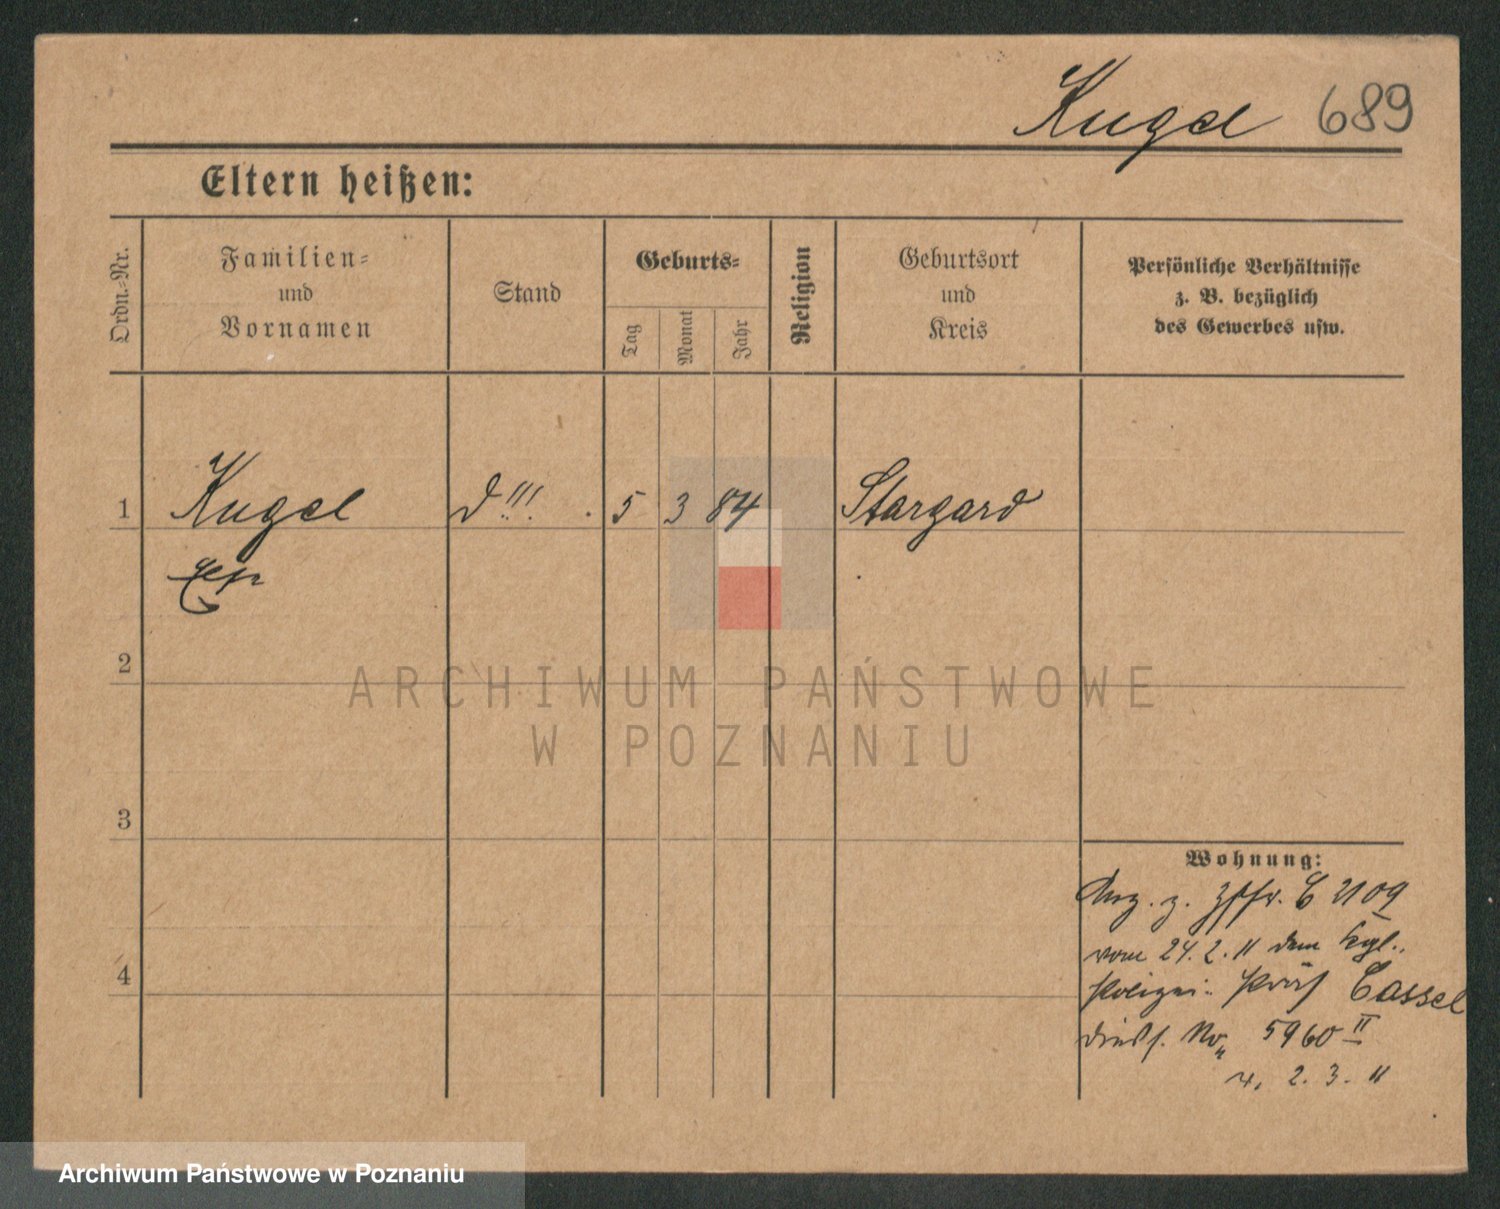 Kugel 689
Eltern heißen:
Ordn.-Nr.
Familien-
und
Vornamen
Stand
Geburts-
Tag
Monat
Jahr
Religion
Geburtsort
und
Kreis
Persönliche Verhältnisse
z. B. bezüglich
des Gewerbes usw.
1 Kugel 5 3 84 Stargard
2
ARCHIWUM PAŃSTWOWE
W POZNANIU
3
Wohnung:
z. C 2109
vom 24.2.11 dem Kgl.
Polizei- Präs Cassel
No 5960 II
v. 2.3.11
4
Archiwum Państwowe w Poznaniu